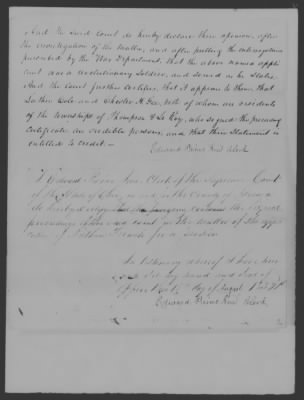 And the said Court do hereby declare their opinion, after
the investigation of the matter, and after putting the interrogatories
prescribed by the War Department, that the above named appli
cant was a revolutionary Soldier, and served as he States.
And the Court further certifies, that it appears to them, that
Luther Cole and Chester A. Gee, both of whom are residents
of the townships of Thompson & Le Roy, who signed the preceeding
Certificate are credible persons, and that their Statement is
entitled to credit.
Edward Paine Jun Clerk
I Edward Paine Jun Clerk of the Supreme Court
of the State of Ohio, in and for the County of Geauga
do hereby certify that the foregoing contains the original
proceedings of the said court in the matter of the appli
cation of for a Pension
In testimony whereof I have here
unto set my hand and seal of
office this day of August
Edward Paine Jun Clerk